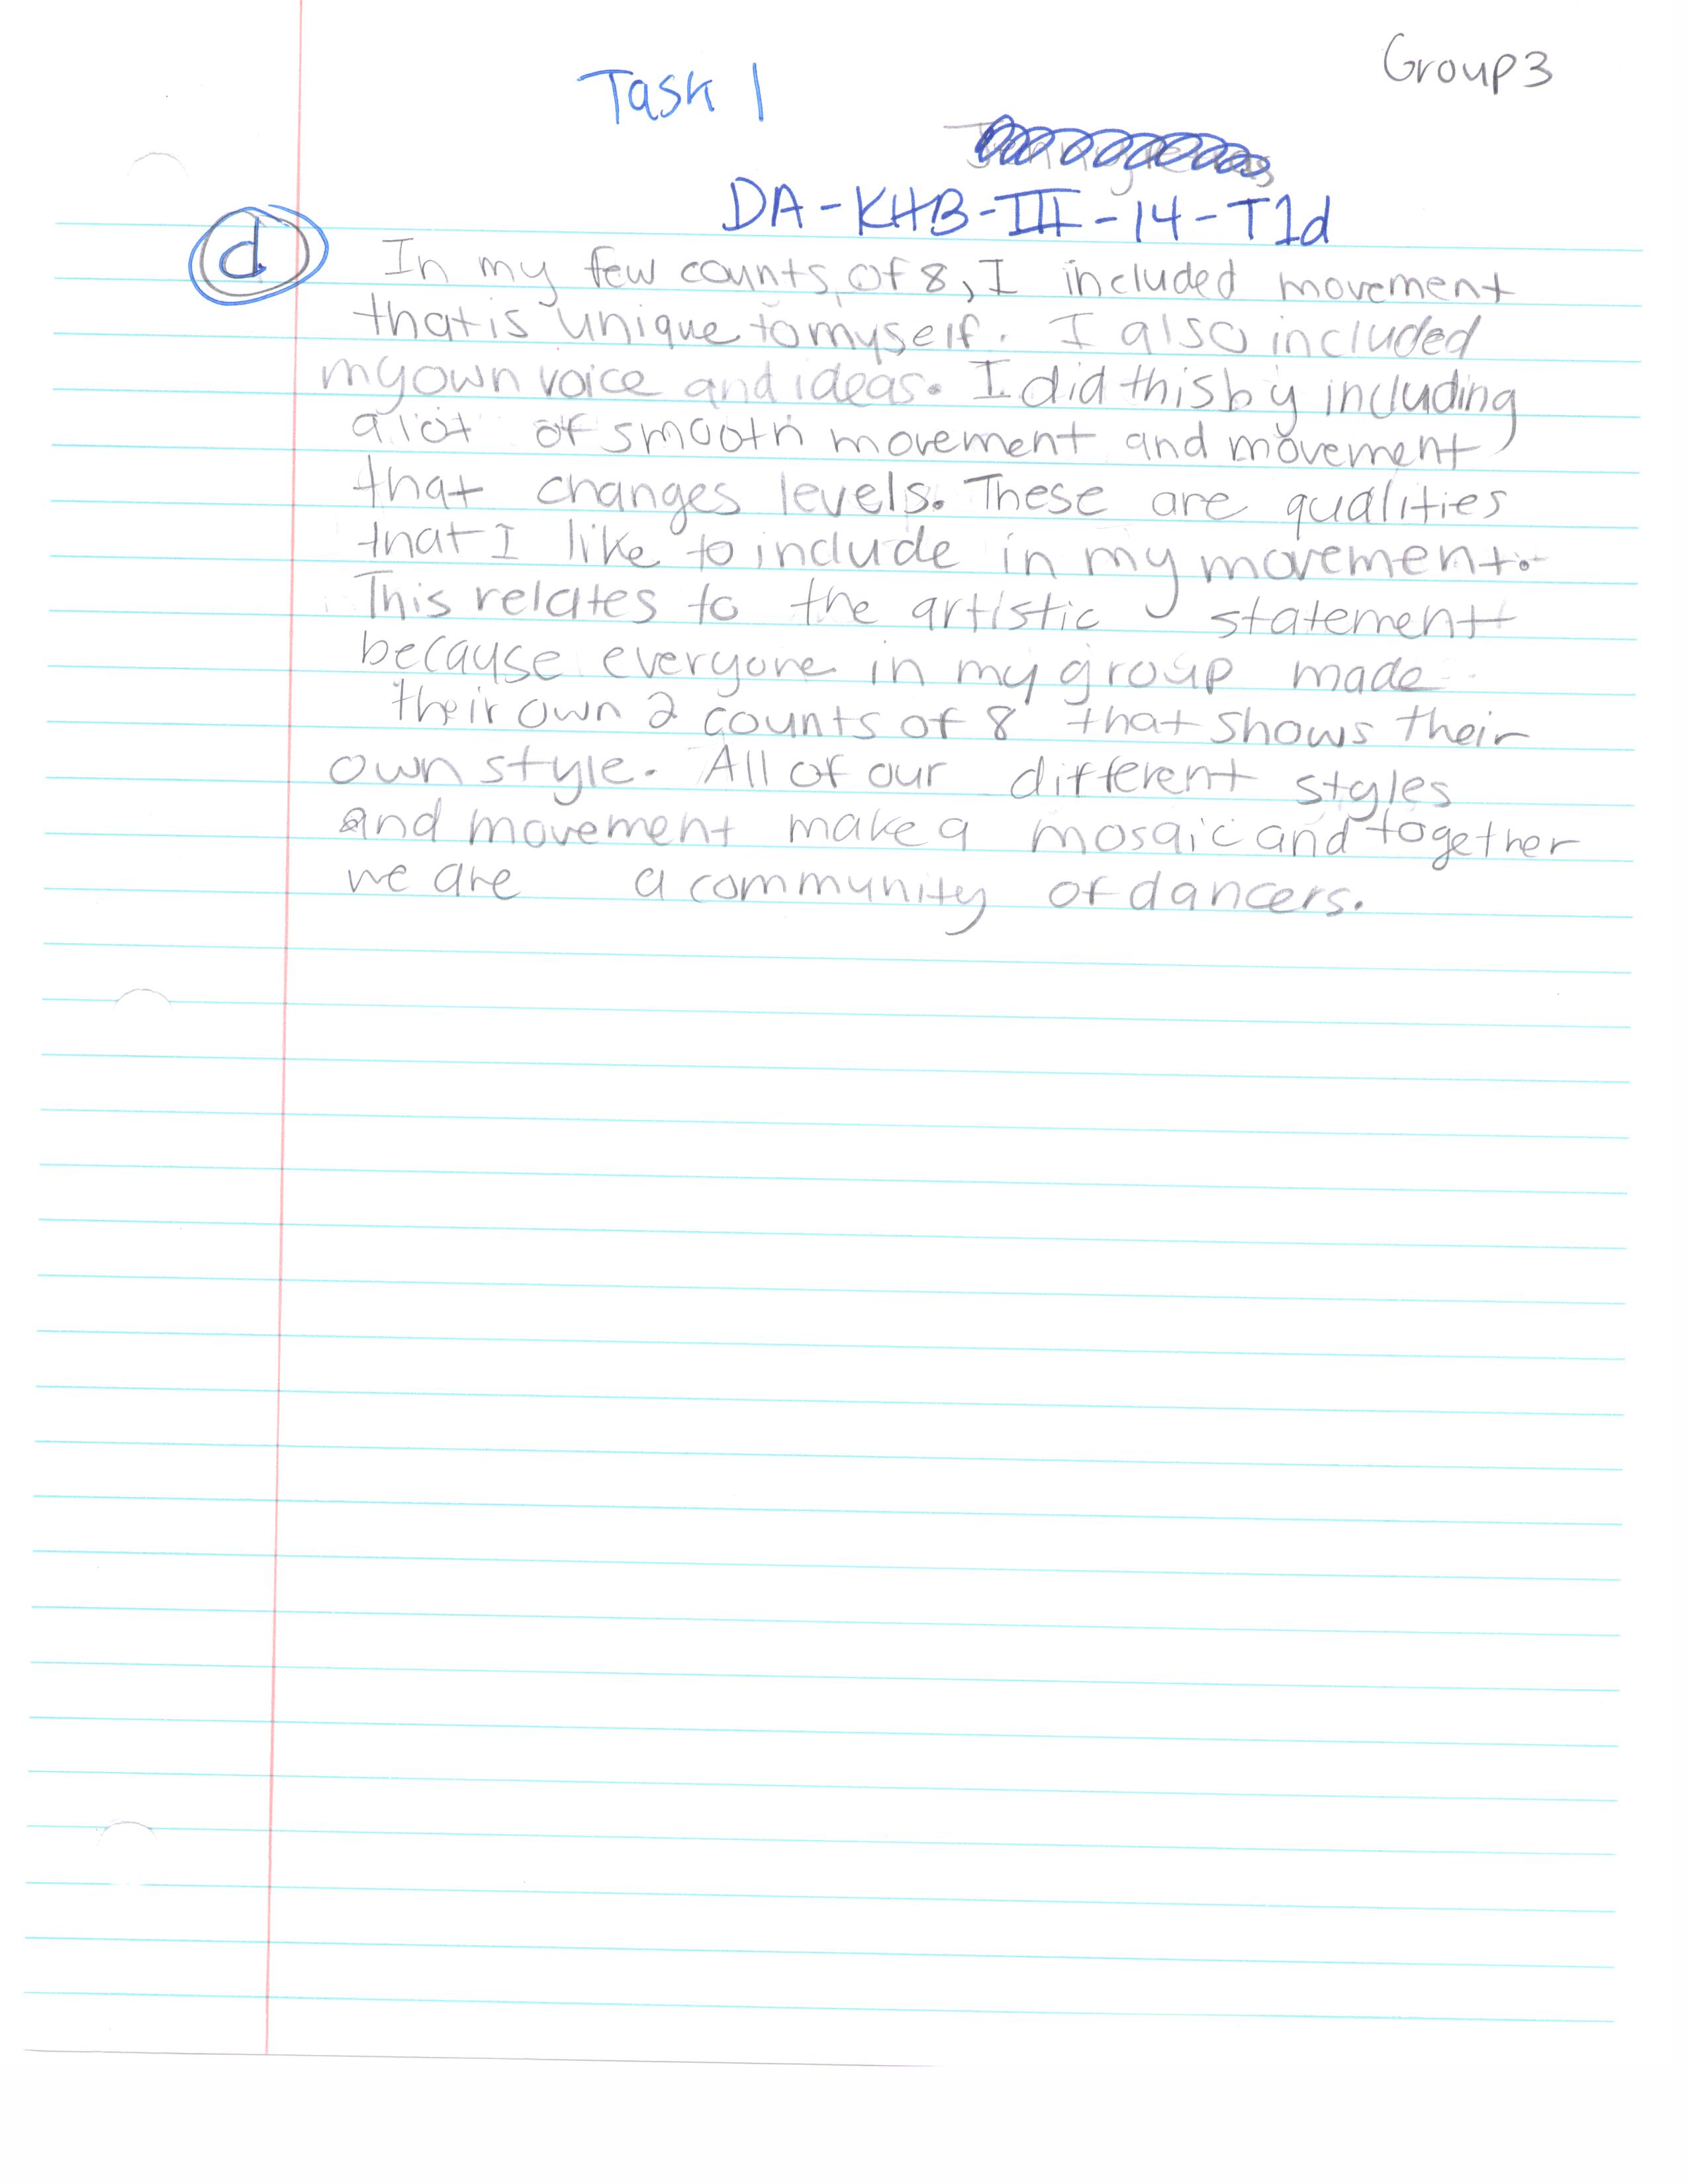 Group 3
Task 1
DA-KHB-III-14-T1d
d
In my few counts of 8, I included movement
that is unique to myself. I also included
my own voice and ideas. I did this by including
a lot of smooth movement and movement
that changes levels. These are qualities
that I like to include in my movement.
This relates to the artistic statement
because everyone in my group made
their own 2 counts of 8 that shows their
own style. All of our different styles
and movement make a mosaic and together
we are a community of dancers.